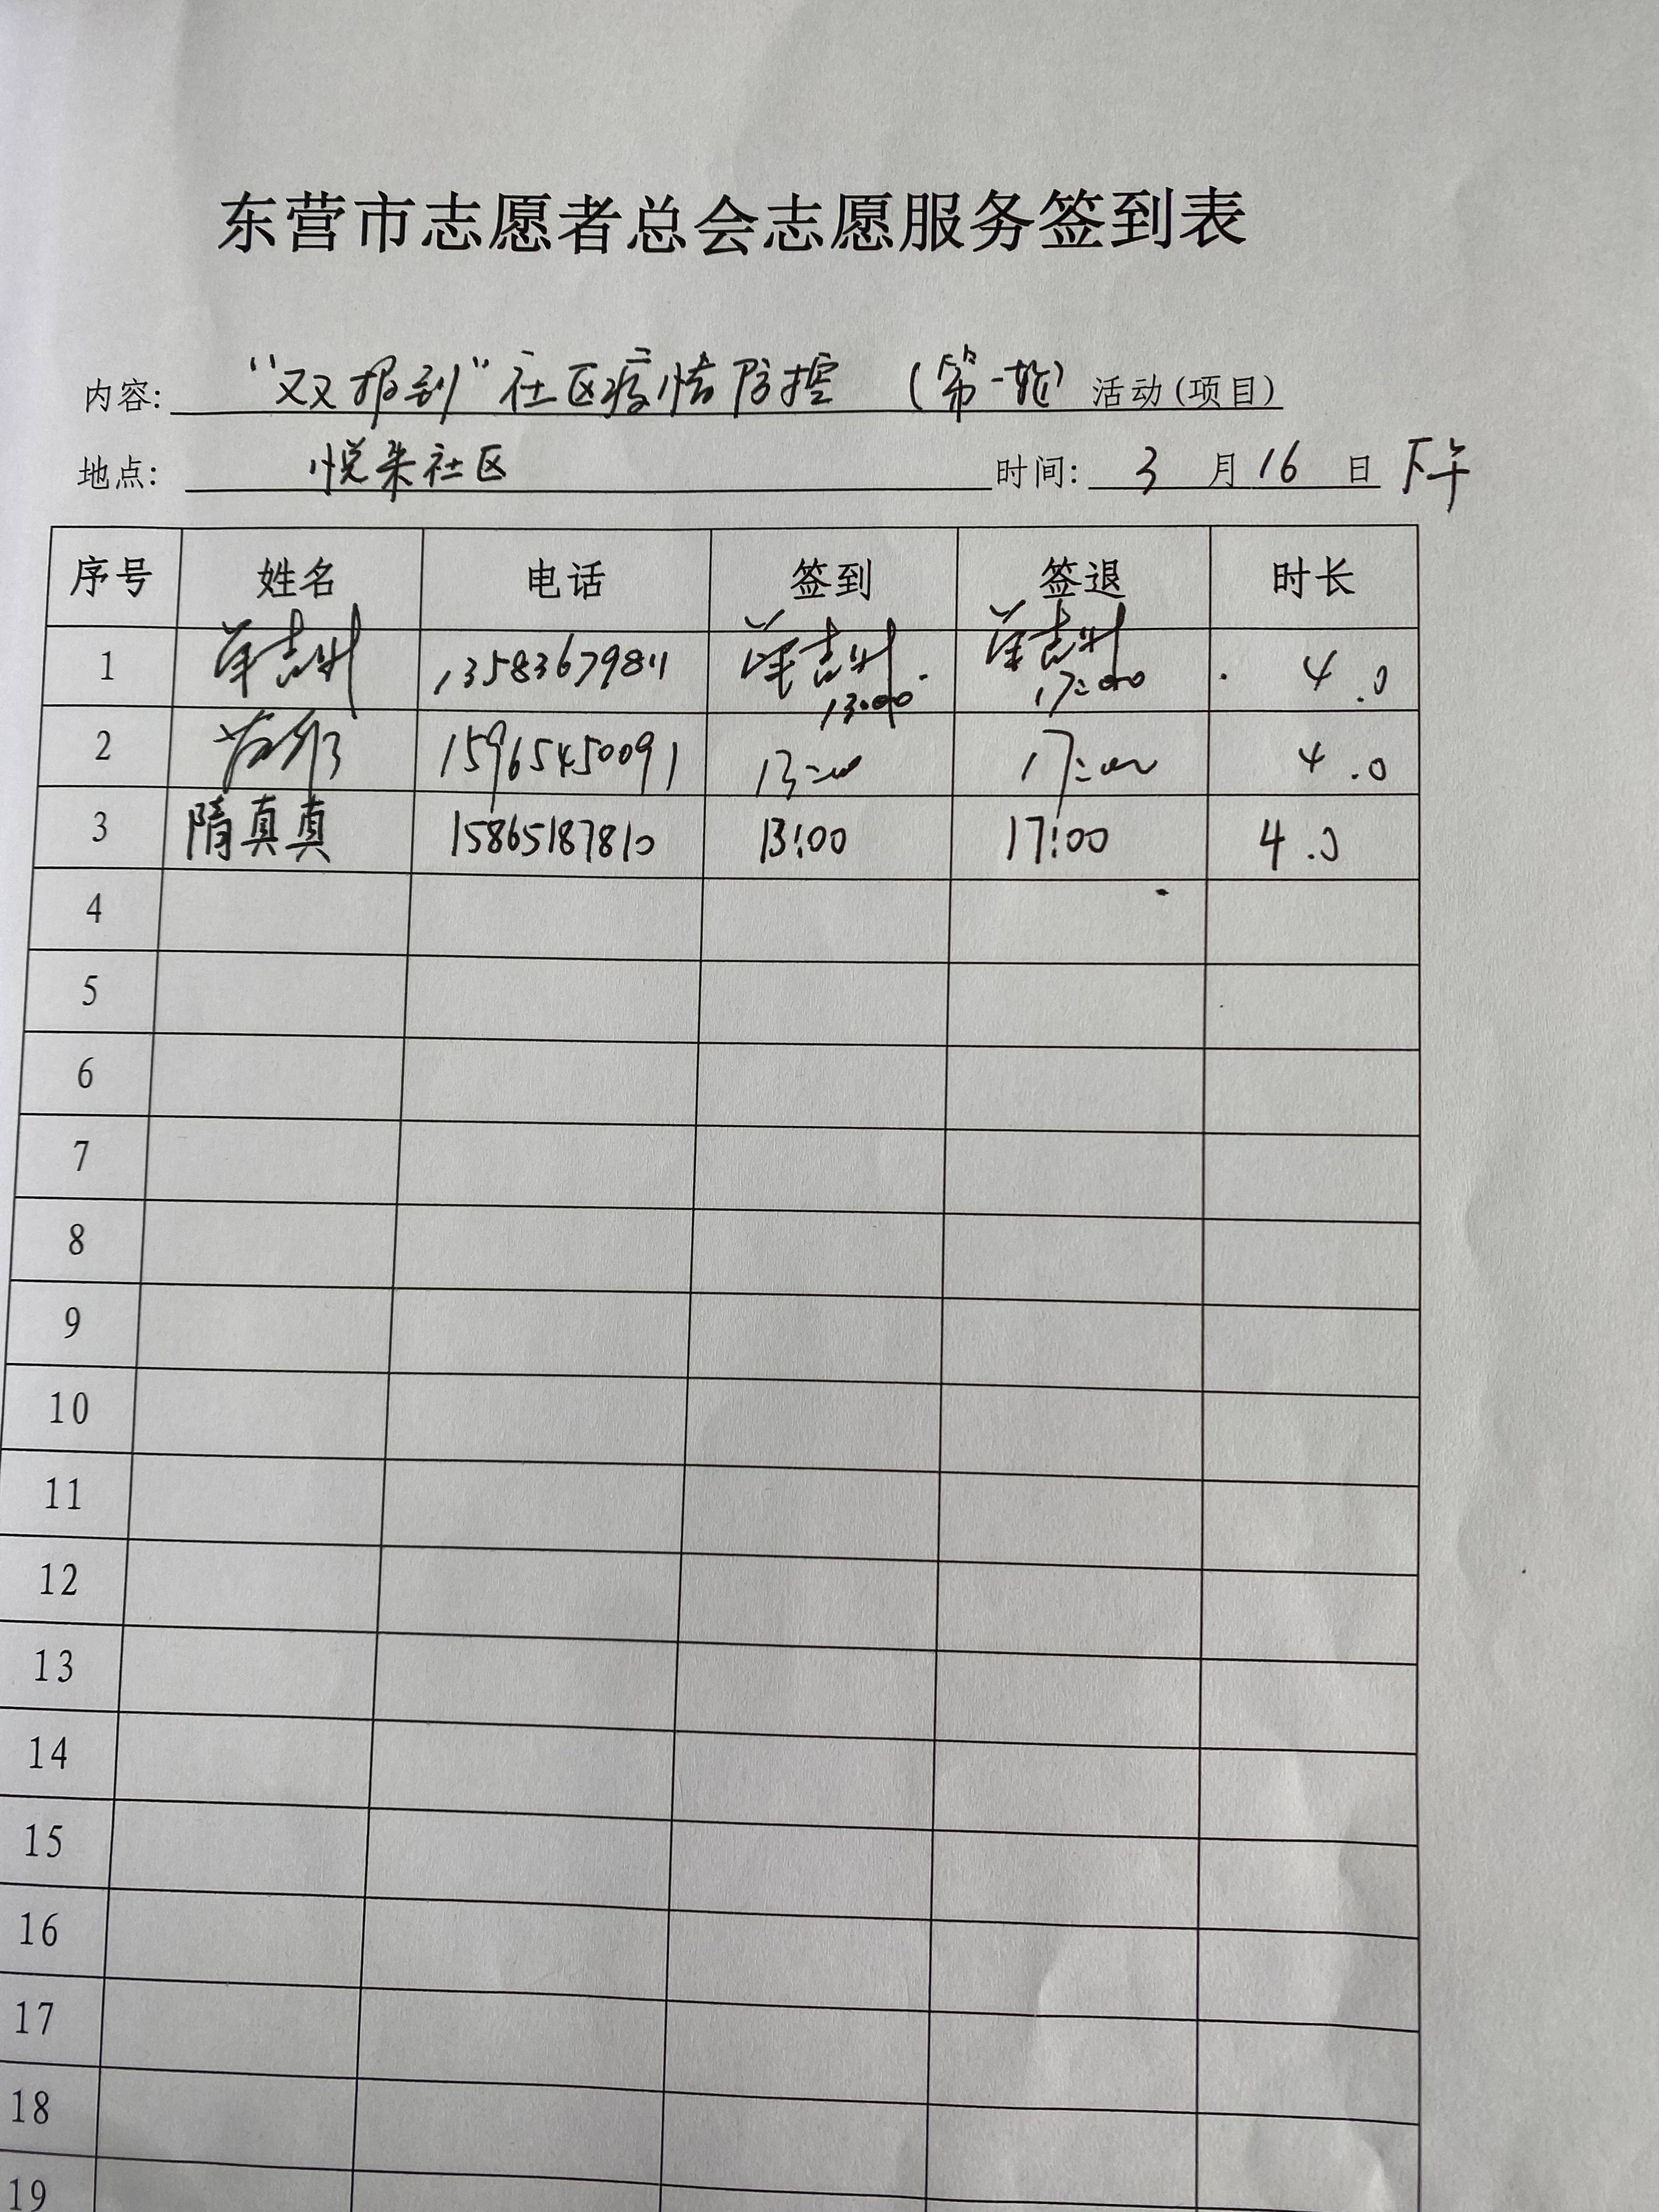 东营市志愿者总会志愿服务签到表
内容: "双报到"社区疫情防控 (第一轮) 活动(项目)
地点: 悦来社区 时间: 3月16日 下午
序号 姓名 电话 签到 签退 时长
1 13:00 17:00 4.0
2 15965450091 13:00 17:00 4.0
3 隋真真 15865187810 13:00 17:00 4.0
4
5
6
7
8
9
10
11
12
13
14
15
16
17
18
19